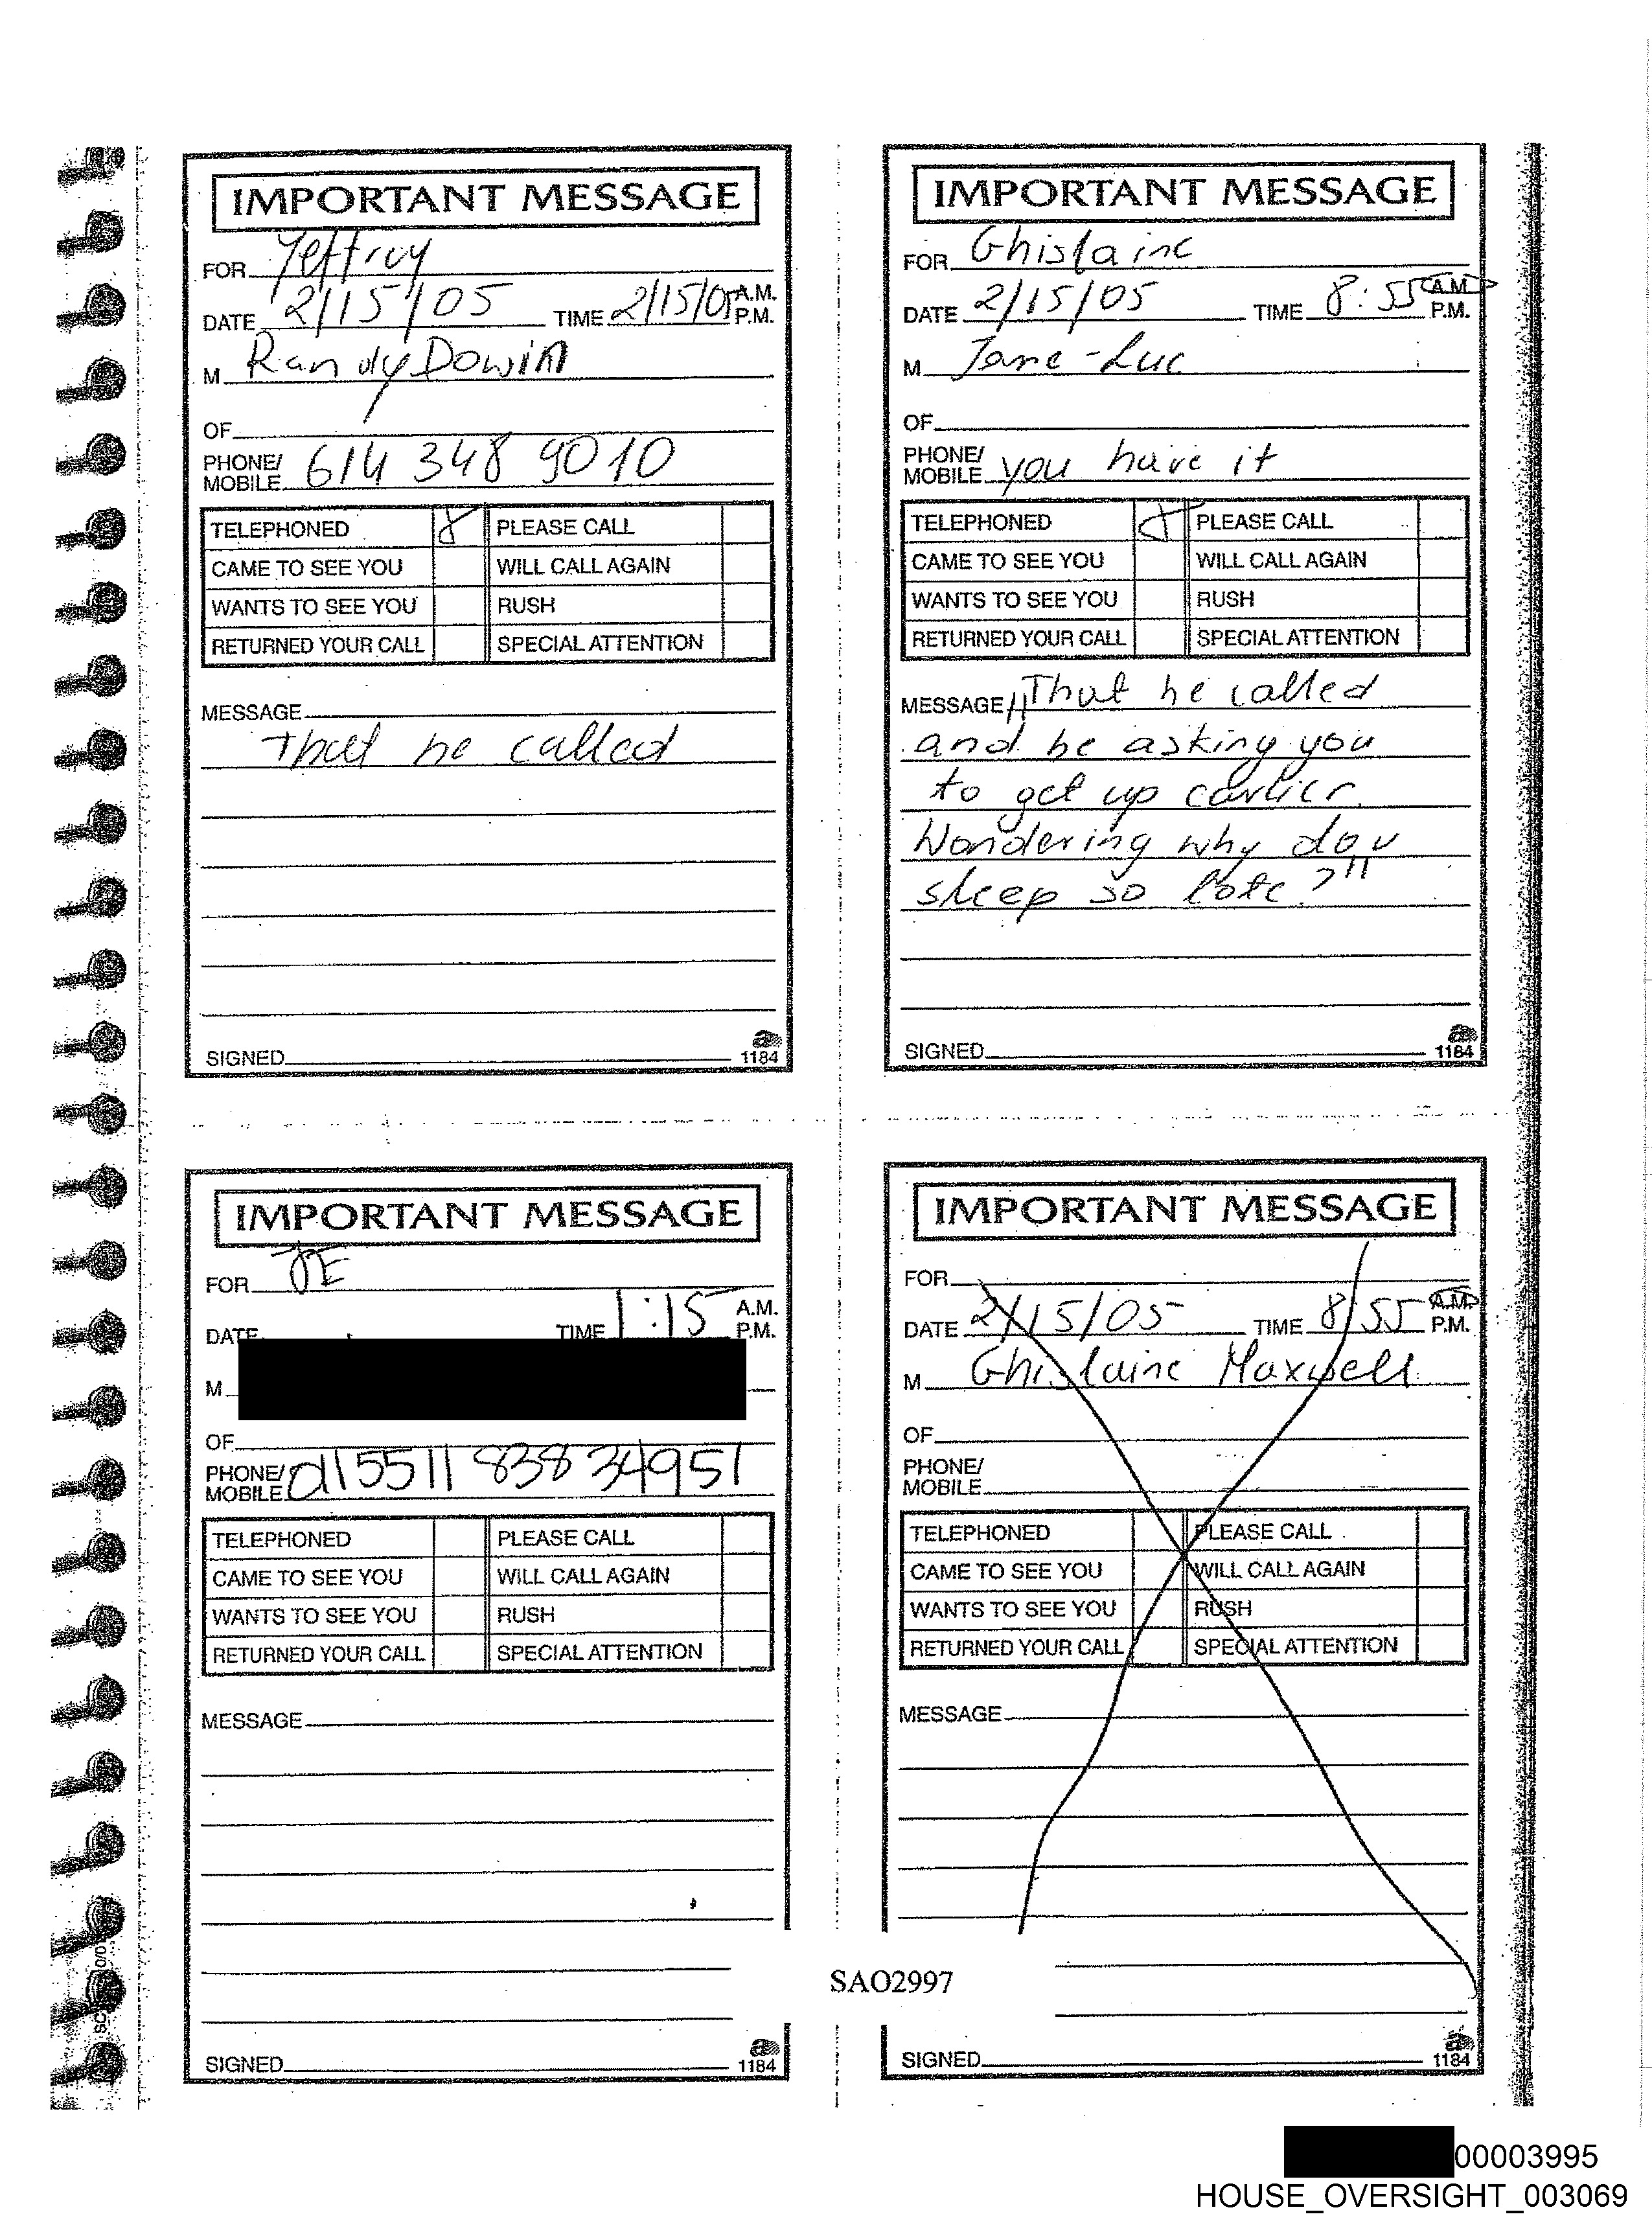 IMPORTANT MESSAGE
FOR Jeffrey
DATE 2/15/05 TIME 2/15/05 A.M. P.M.
M Randy Dowin
OF
PHONE/ MOBILE 614 348 9010
TELEPHONED PLEASE CALL
CAME TO SEE YOU WILL CALL AGAIN
WANTS TO SEE YOU RUSH
RETURNED YOUR CALL SPECIAL ATTENTION
MESSAGE
That he called
SIGNED
1184
IMPORTANT MESSAGE
FOR Ghislaine
DATE 2/15/05 TIME 8:55 A.M. P.M.
M Jane-Luc
OF
PHONE/ MOBILE you have it
TELEPHONED PLEASE CALL
CAME TO SEE YOU WILL CALL AGAIN
WANTS TO SEE YOU RUSH
RETURNED YOUR CALL SPECIAL ATTENTION
MESSAGE "That he called
and he asking you
to get up earlier.
Wondering why do u
sleep so late?"
SIGNED
1184
IMPORTANT MESSAGE
FOR JE
DATE TIME 1:15 A.M. P.M.
M
OF
PHONE/ MOBILE 0115511 83834951
TELEPHONED PLEASE CALL
CAME TO SEE YOU WILL CALL AGAIN
WANTS TO SEE YOU RUSH
RETURNED YOUR CALL SPECIAL ATTENTION
MESSAGE
SIGNED
1184
IMPORTANT MESSAGE
FOR
DATE 2/15/05 TIME 8:55 A.M. P.M.
M Ghislaine Maxwell
OF
PHONE/ MOBILE
TELEPHONED PLEASE CALL
CAME TO SEE YOU WILL CALL AGAIN
WANTS TO SEE YOU RUSH
RETURNED YOUR CALL SPECIAL ATTENTION
MESSAGE
SIGNED
1184
SAO2997
00003995
HOUSE_OVERSIGHT_003069